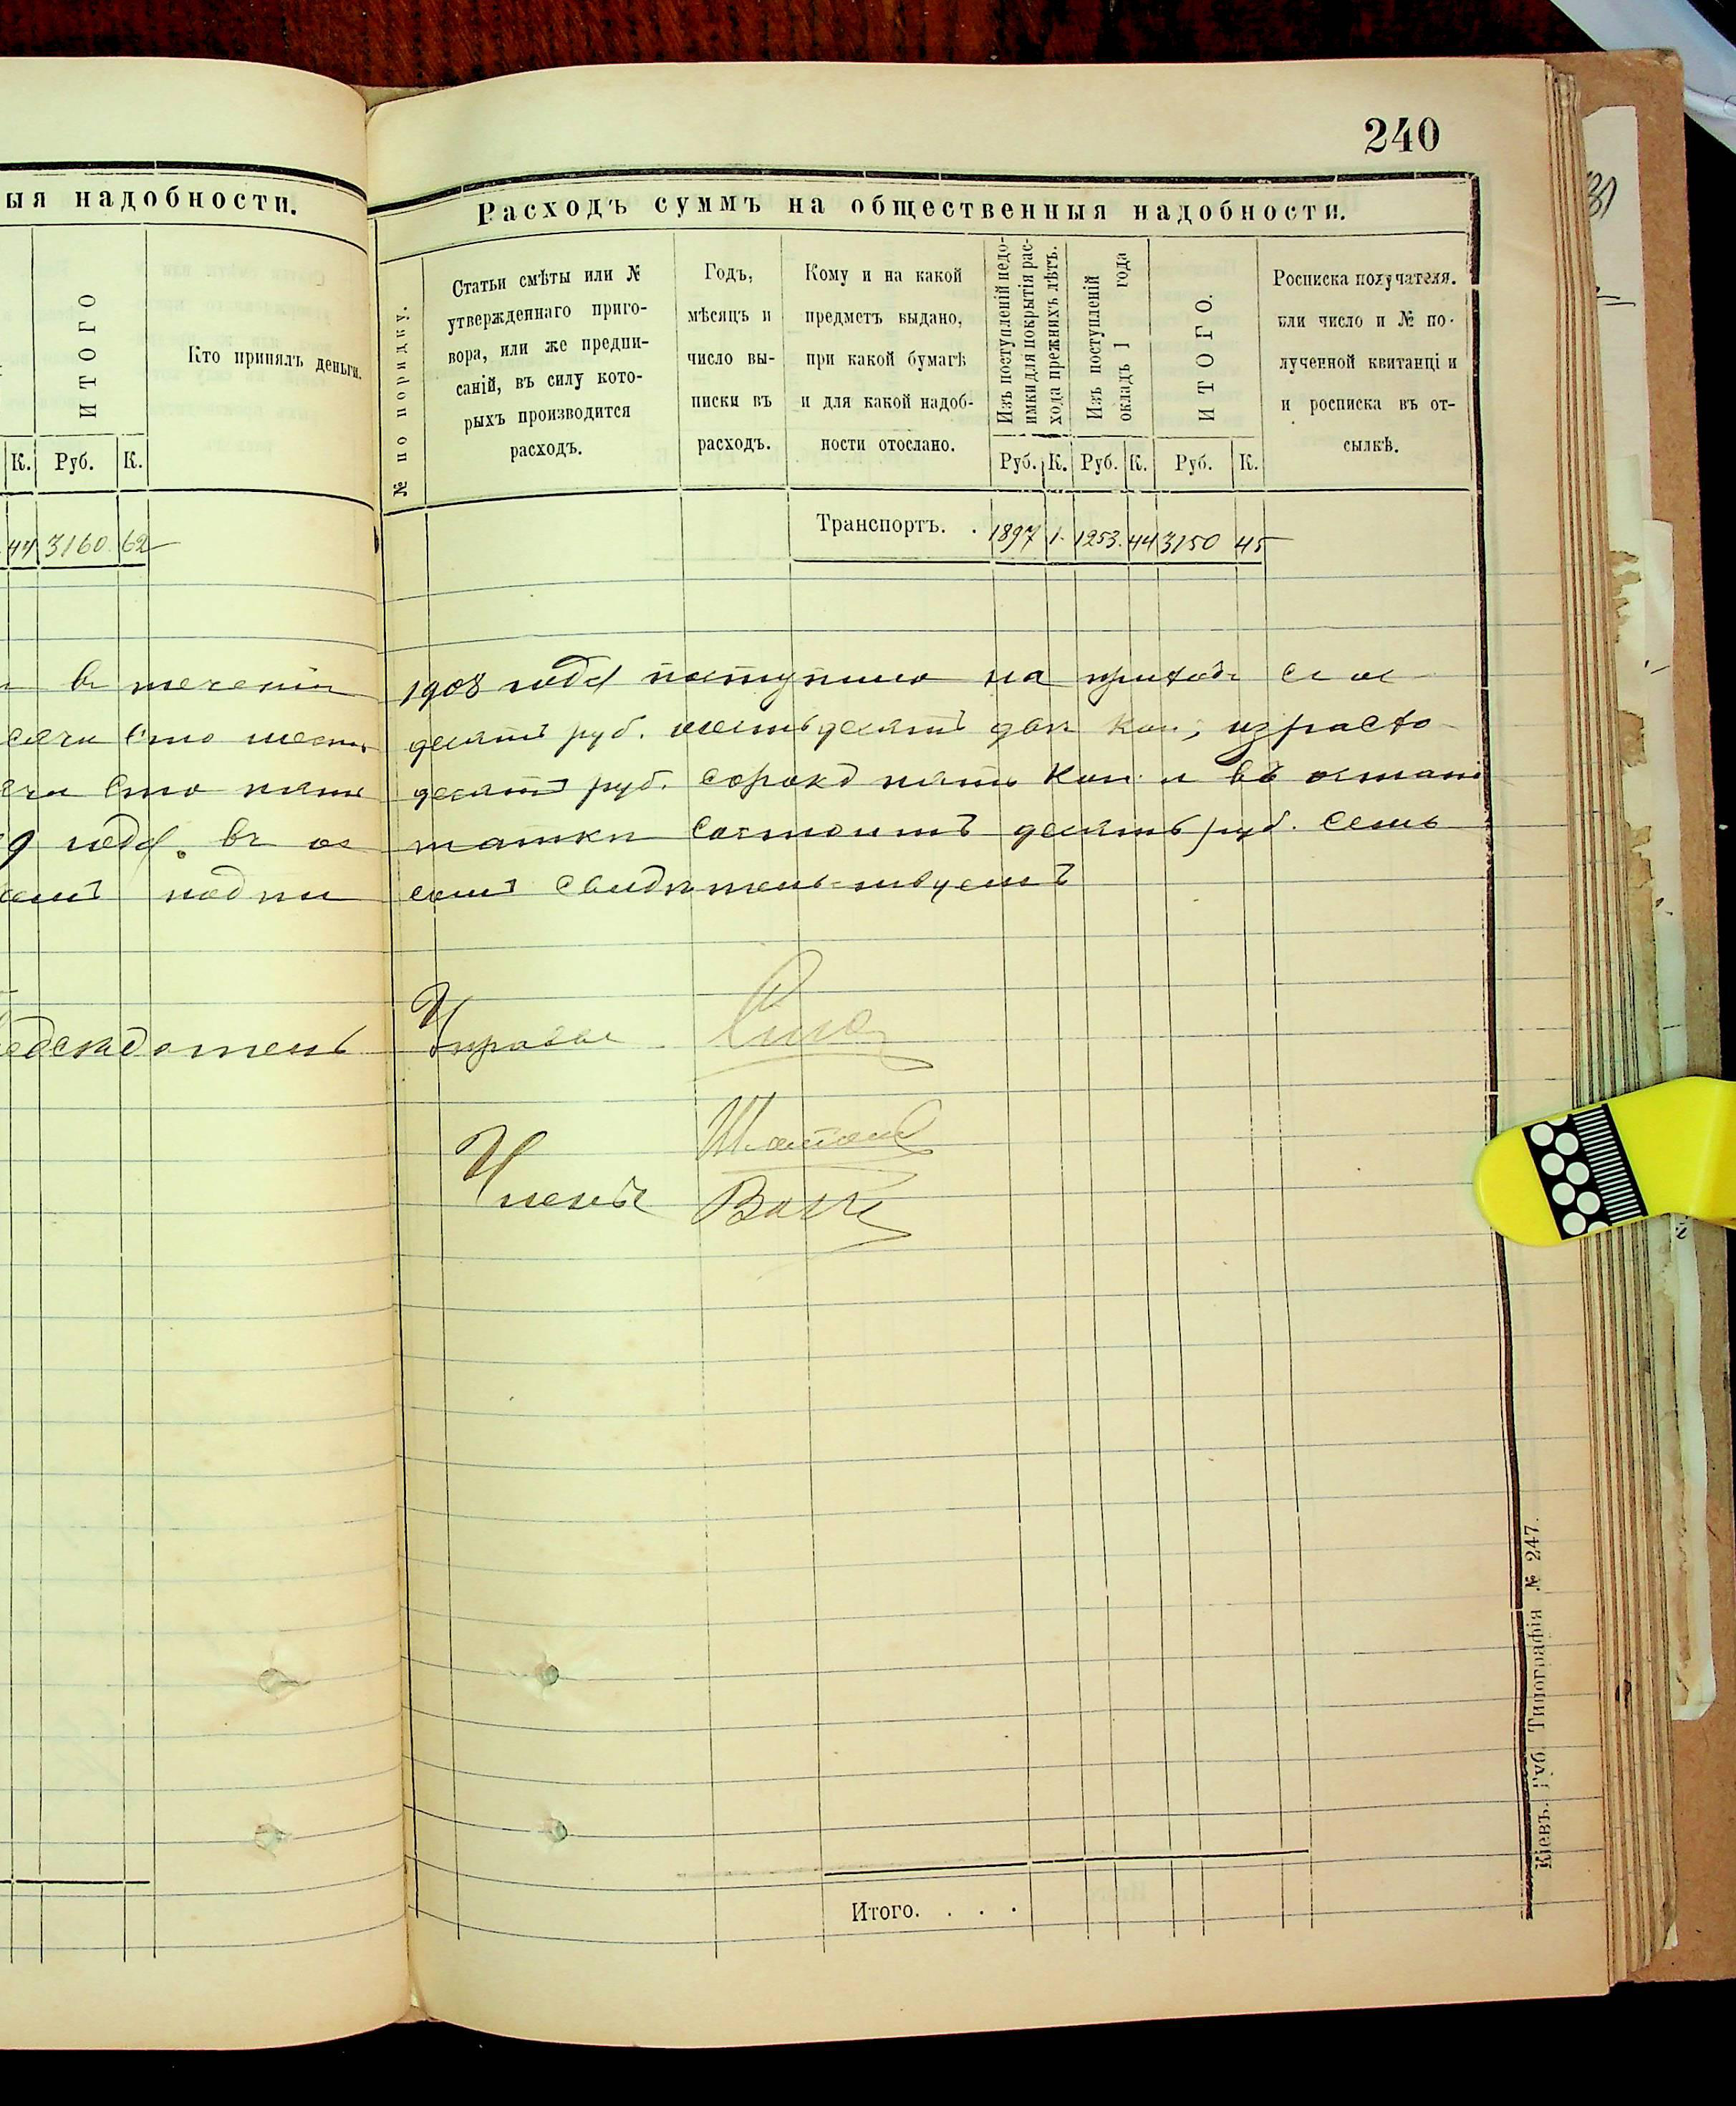 240
ыя надобности.
ИТОГО
Кто принялъ деньги.
К. Руб. К.
44 3160 62
в теченіи
сто
сто
года въ ос
подпи
Расходъ суммъ на общественныя надобности.
№ по порядку.
Статьи смѣты или №
утвержденнаго приго-
вора, или же предпи-
саній, въ силу кото-
рыхъ производится
расходъ.
Годъ,
мѣсяцъ и
число вы-
писки въ
расходъ.
Кому и на какой
предметъ выдано,
при какой бумагѣ
и для какой надоб-
ности отослано.
Изъ поступленій недо-
имки для покрытія рас-
хода прежнихъ лѣтъ.
Изъ поступленій
окладъ 1 года
ИТОГО.
Росписка получателя.
или число и № по-
лученной квитанціи
и росписка въ от-
сылкѣ.
Руб. К. Руб. К. Руб. К.
Транспортъ. . 1897 1. 1253. 44 3150 45
1908 года поступило на приходъ
десятъ руб. шестьдесятъ два коп; израсхо
десятъ руб. сорокъ пять коп. и въ
татки состоитъ десять руб. семь
семъ свидѣтельствуемъ
Управы
Члены
Итого. . . .
Кіевъ. Губ. Типографія № 247.